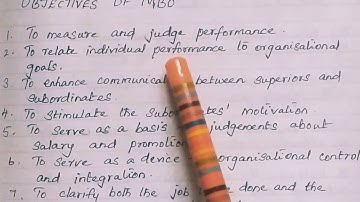 OBJECTIVES OF MBO
1. To measure and judge performance.
2. To relate individual performance to organisational
goals.
3. To enhance communicat between superiors and
subordinates.
4. To stimulate the subo tes' motivation.
5. To serve as a basis judgements about
salary and promotion
6. To serve as a device organisational control
and integration.
7. To clarify both the job done and the